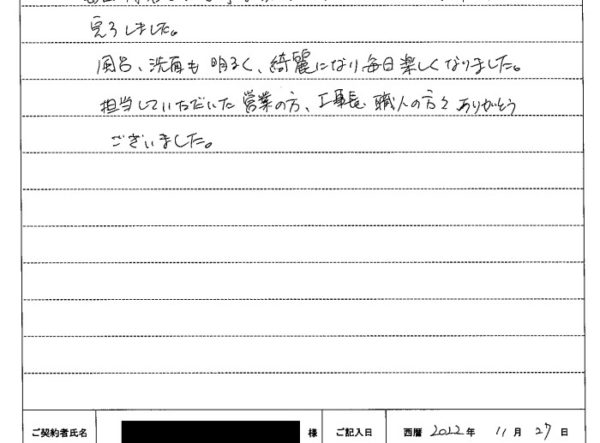 完了しました。
風呂、洗面も明るく、綺麗になり毎日楽しくなりました。
担当していただいた営業の方、工事長、職人の方々ありがとう
ございました。
ご契約者氏名 様 ご記入日 西暦 2022年 11月 27日